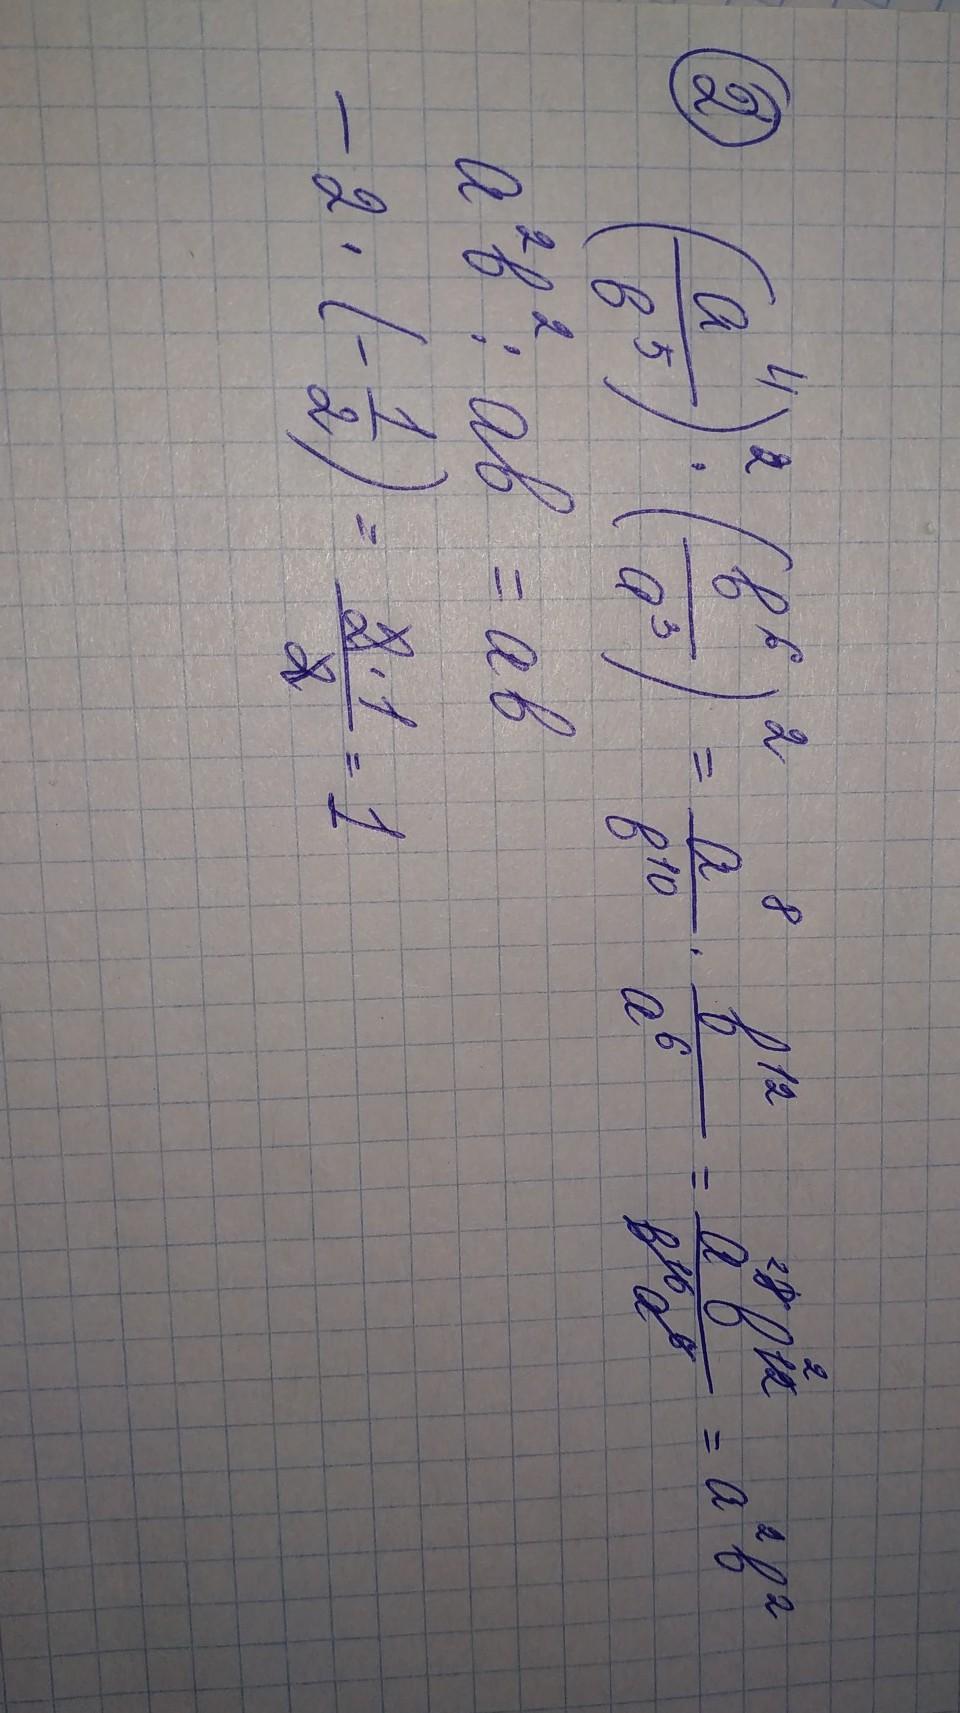 ②
(a⁴/b⁵)² · (b⁶/a³)² = a⁸/b¹⁰ · b¹²/a⁶ = a⁸b¹²/b¹⁰a⁶ = a²b²
a²b² : ab = ab
−2 · (−1/2) = 2·1/2 = 1